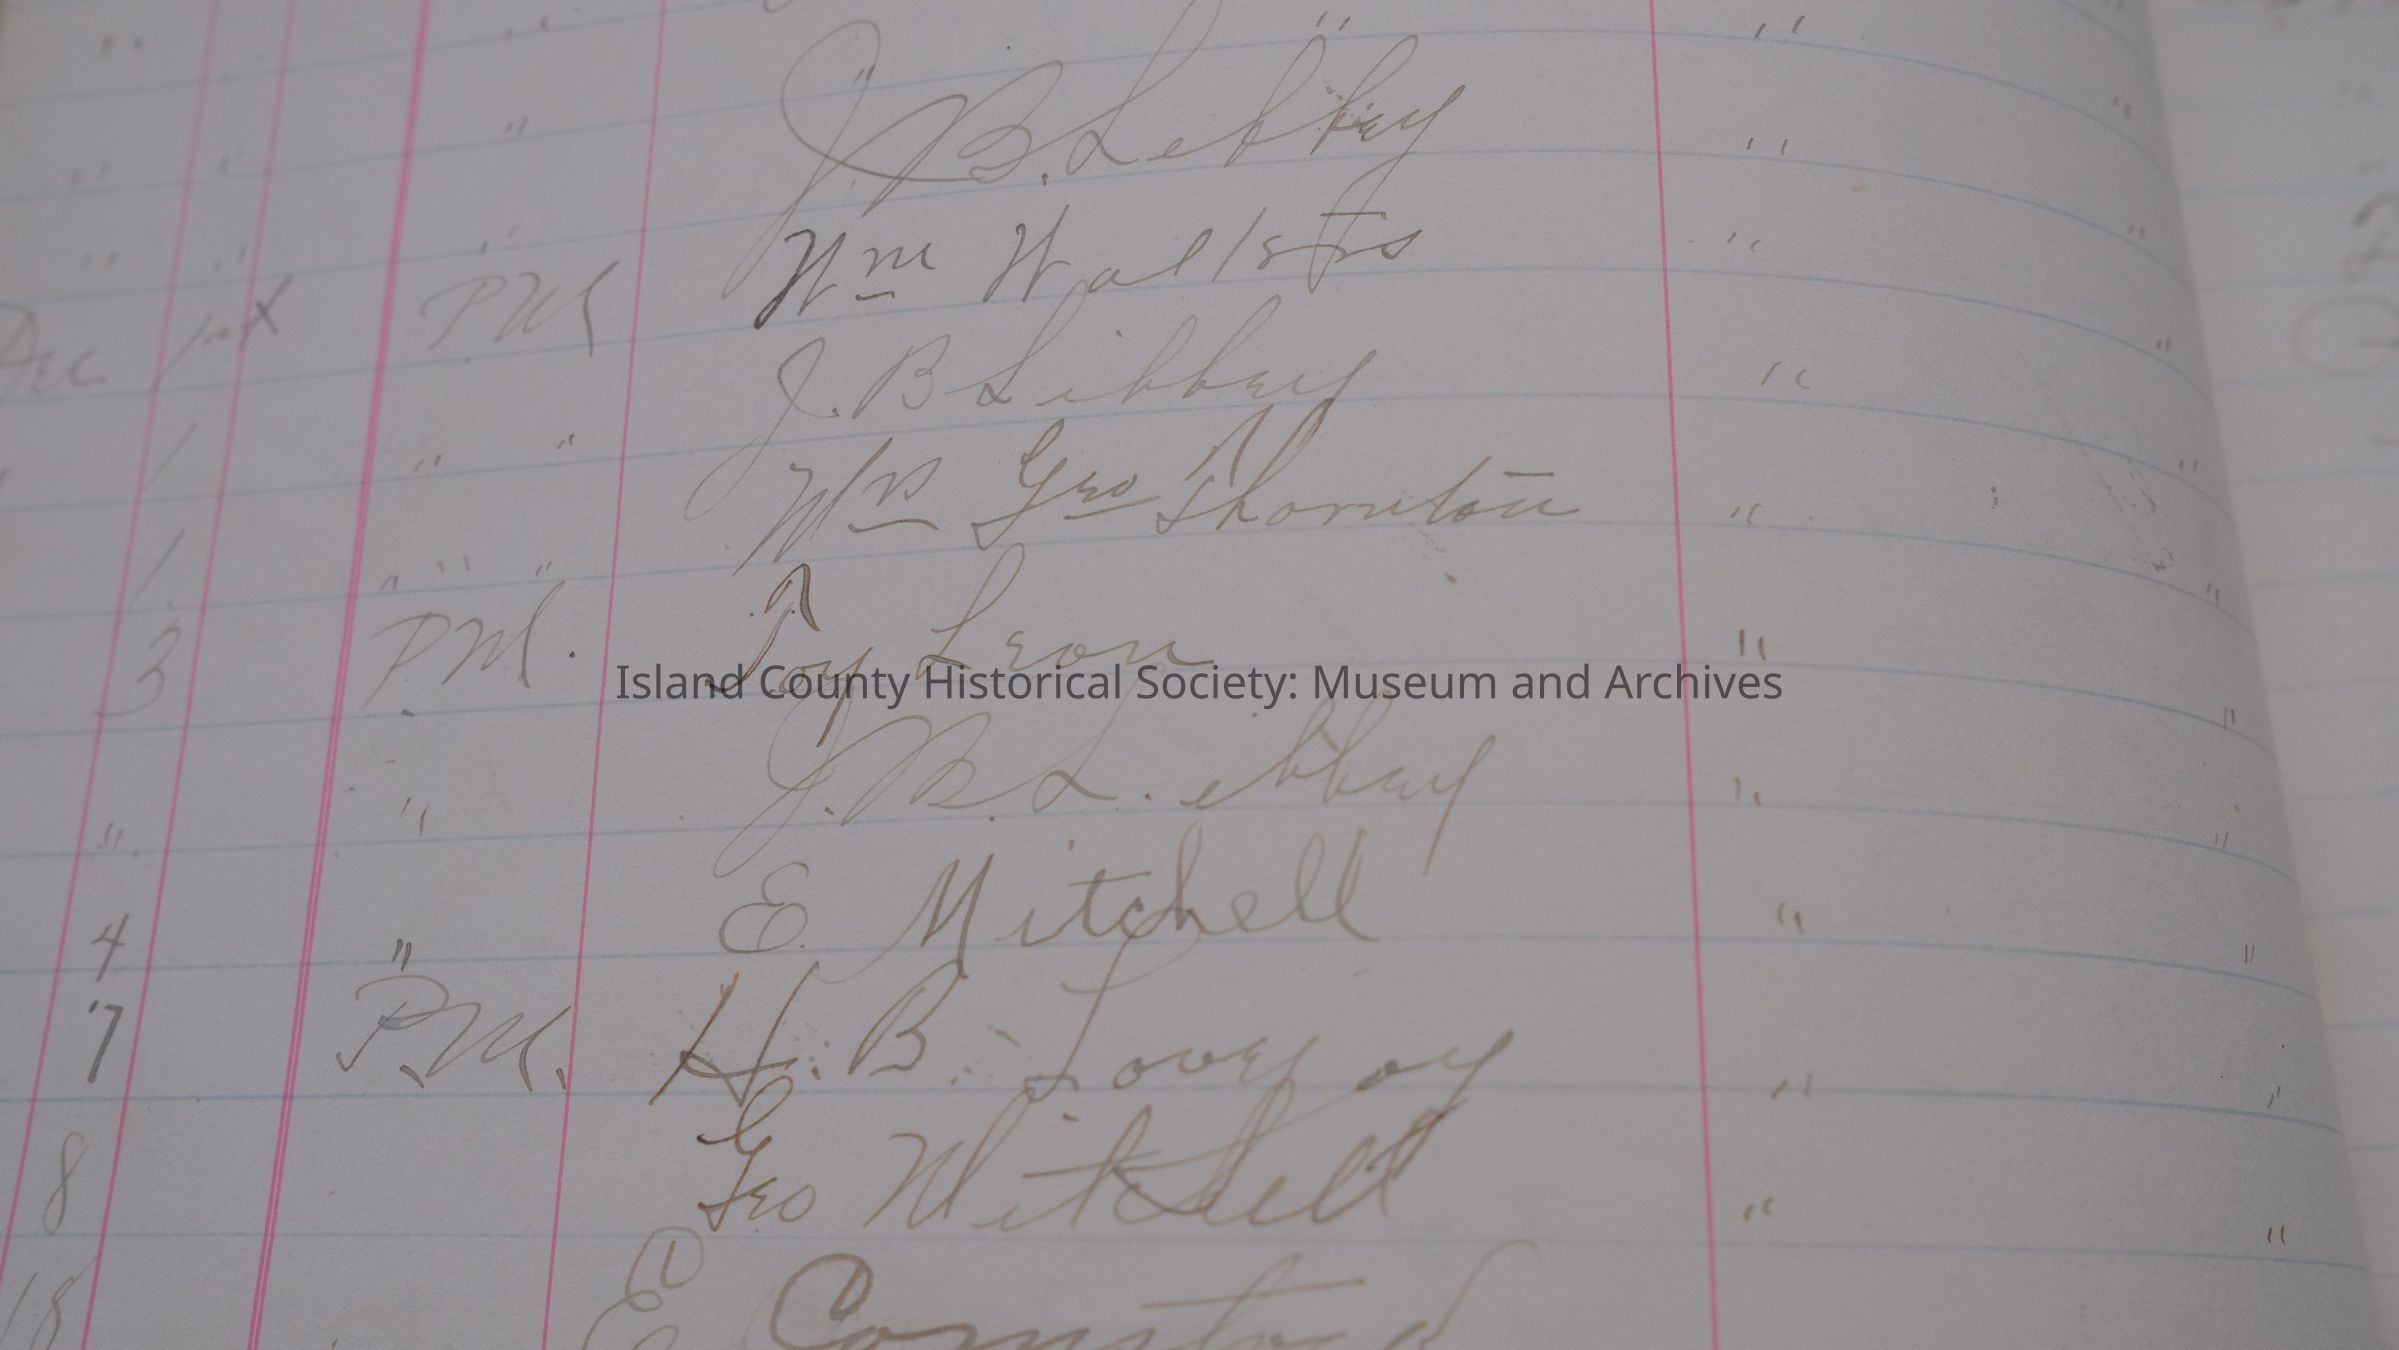 " " " J. B. Libbey " "
" " " Wm Walsters " "
Dec 1st PM J. B Libbey " "
" 1 " " Wm Geo Thornton " "
1 " " " Joy Leon " "
3 PM. J. B. Libbey " "
" " E. Mitchell " "
4 " H. B. Lovejoy " "
7 P.M. Geo Mitchell " "
8
18 ① E Comstock
Island County Historical Society: Museum and Archives